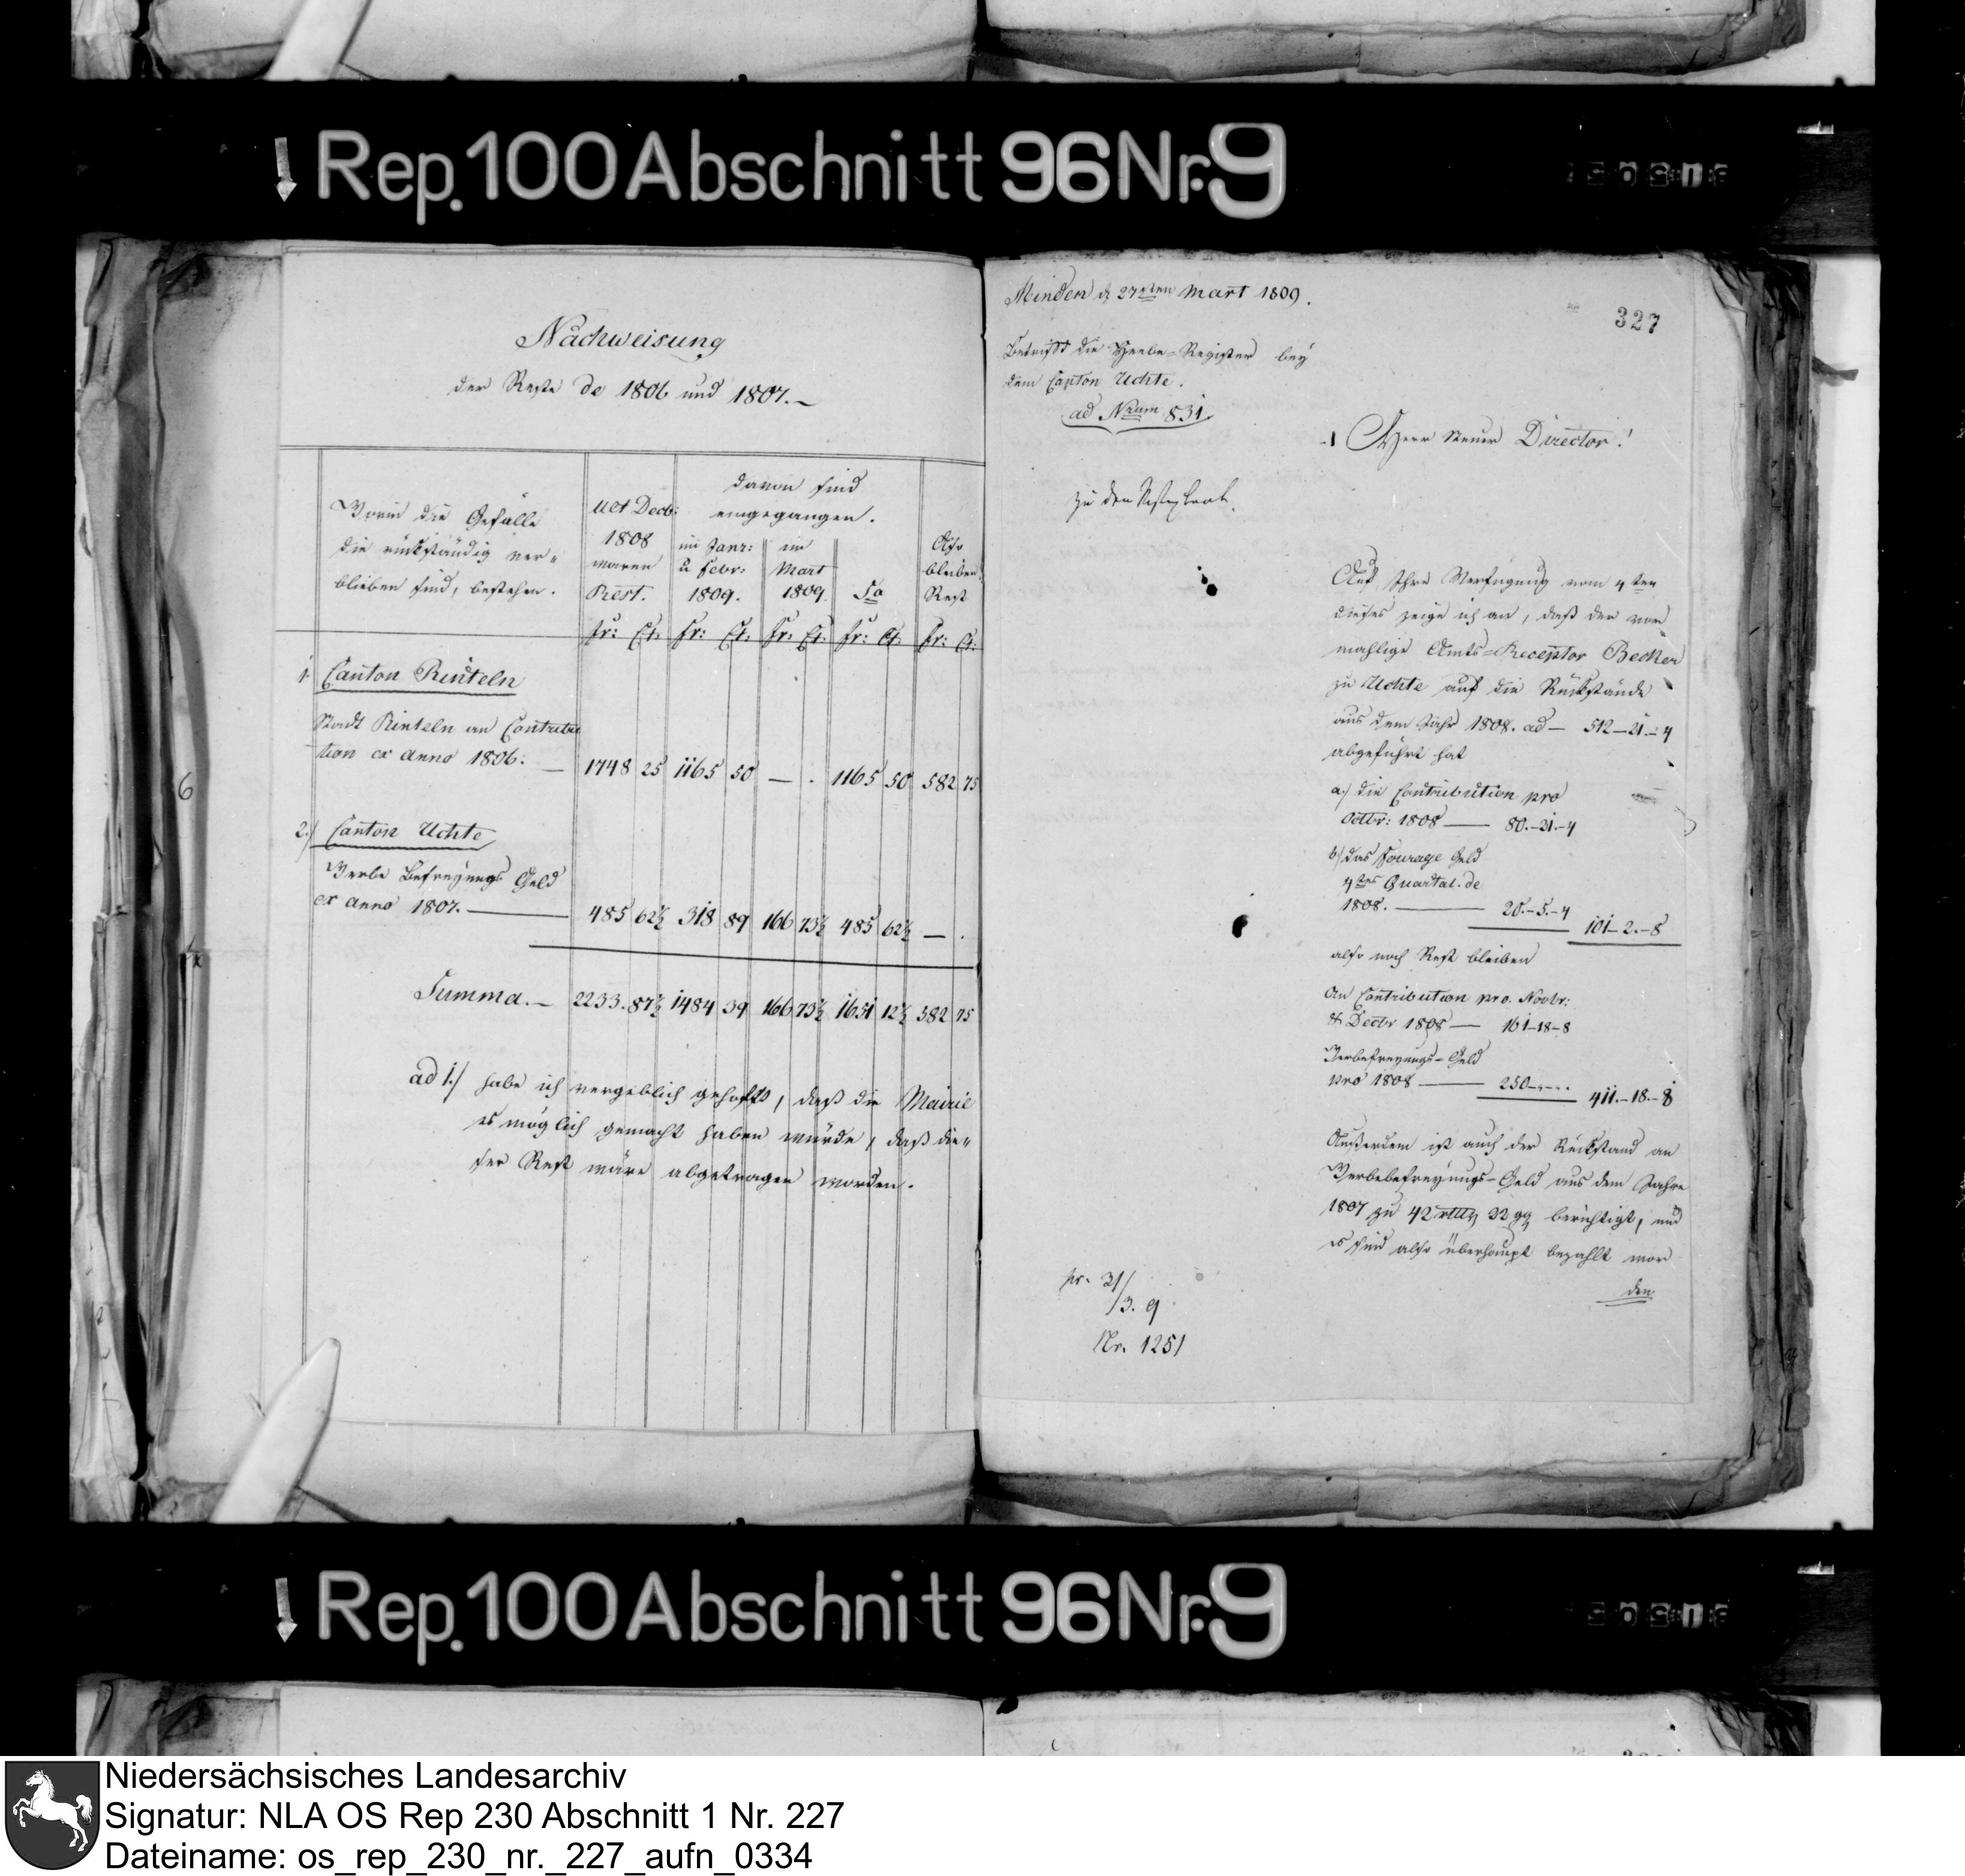 Rep. 100 Abschnitt 96 Nr. 9
Nachweisung
der Reste de 1806 und 1807.–
Worin die Gefälle
die rückständig ver-
blieben sind, bestehen.
Ult Decb:
1808
waren
Rest.
davon sind
eingegangen.
im Janr:
u Febr:
1809.
im
Mart
1809.
Sa
Also
bleiben
Rest
fr: Ct. fr: Ct. fr: Ct. fr: Ct. fr: Ct.
1. Canton Rinteln
Stadt Rinteln an Contribu
tion ex anno 1806: — 1748 25 1165 50 — . 1165 50 582 75
2.) Canton Uchte
Werbe Befreyungs Geld
ex anno 1807. — 485 62½ 318 89 166 73½ 485 62½ — .
Summa. — 2233. 87½ 1484 39 166 73½ 1651 12½ 582 75
ad 1.) habe ich vergeblich gehofft, daß die Mairie
es möglich gemacht haben würde, daß die-
ser Rest wäre abgetragen worden.
6
Minden d. 27sten Mart 1809.
327
Betrifft die Hebe-Register bey
dem Canton Uchte.
ad Nrum 831
Herr Steuer Director!
zu den
Auf Ihre Verfügung vom 4ten
dieses zeige ich an, daß der vor
mahlige Amts-Receptor Becker
zu Uchte auf die Rückstände
aus dem Jahr 1808. ad — 512–21.–4
abgeführt hat
a.) die Contribution pro
Octbr: 1808 — 80.–21.–4
b) das Fourage Geld
4tes Quartal. de
1808. — 20.–5.–4 101–2.–8
also noch Rest bleiben
An Contribution pro. Novbr:
& Decbr 1808 — 161–18–8
Werbefreyungs-Geld
pro 1808 — 250–.–.. 411.–18.–8
Außerdem ist auch der Rückstand an
Werbebefreyungs-Geld aus dem Jahre
1807 zu 42 rthlr 22 gg berichtigt, und
es sind also überhaupt bezahlt wor
den
pr. 31/3. 9
Nr. 1251
Rep. 100 Abschnitt 96 Nr. 9
Niedersächsisches Landesarchiv
Signatur: NLA OS Rep 230 Abschnitt 1 Nr. 227
Dateiname: os_rep_230_nr._227_aufn_0334